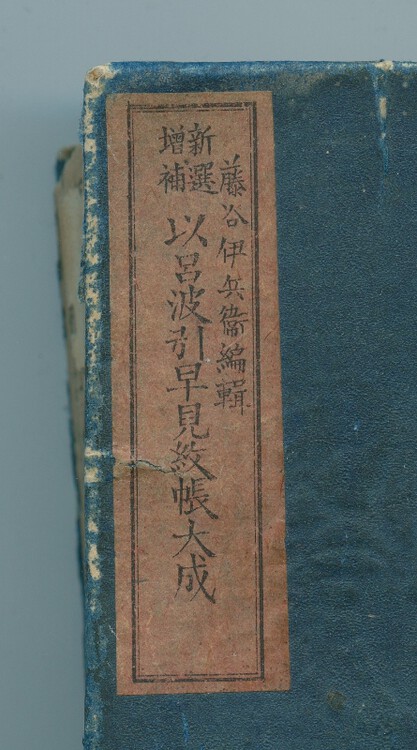 藤谷伊兵衞編輯
新選
増補
以呂波引早見紋帳大成